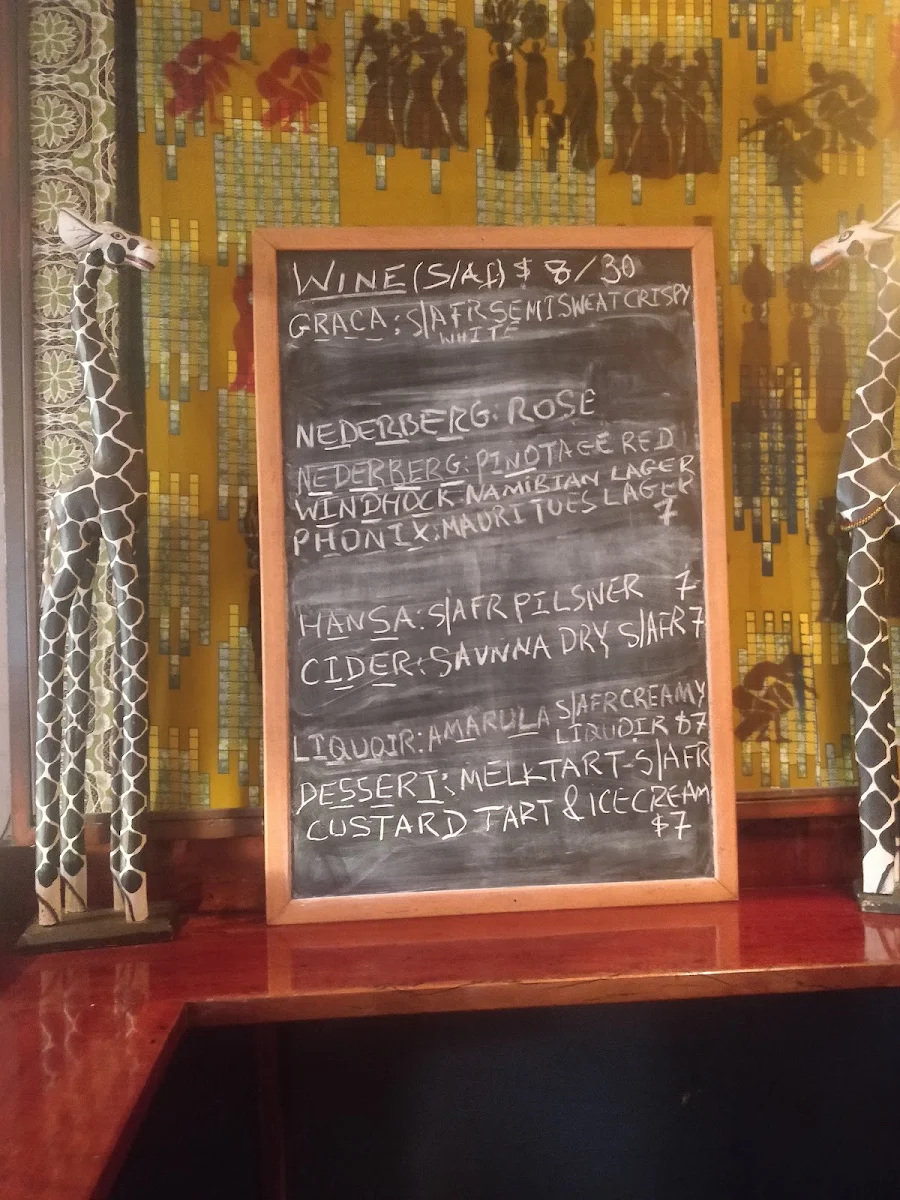 WINE (S/Af) $ 8/30
GRACA: S/AFR SEMI SWEAT CRISPY
WHITE
NEDERBERG: ROSE
NEDERBERG: PINOTAGE RED
WINDHOCK NAMIBIAN LAGER
PHONIX: MAURITUES LAGER
7
HANSA: S/AFR PILSNER 7
CIDER: SAVNNA DRY S/AFR 7
LIQUOIR: AMARULA S/AFR CREAMY
LIQUOIR $7
DESSERT: MELKTART-S/AFR
CUSTARD TART & ICECREAM
$7